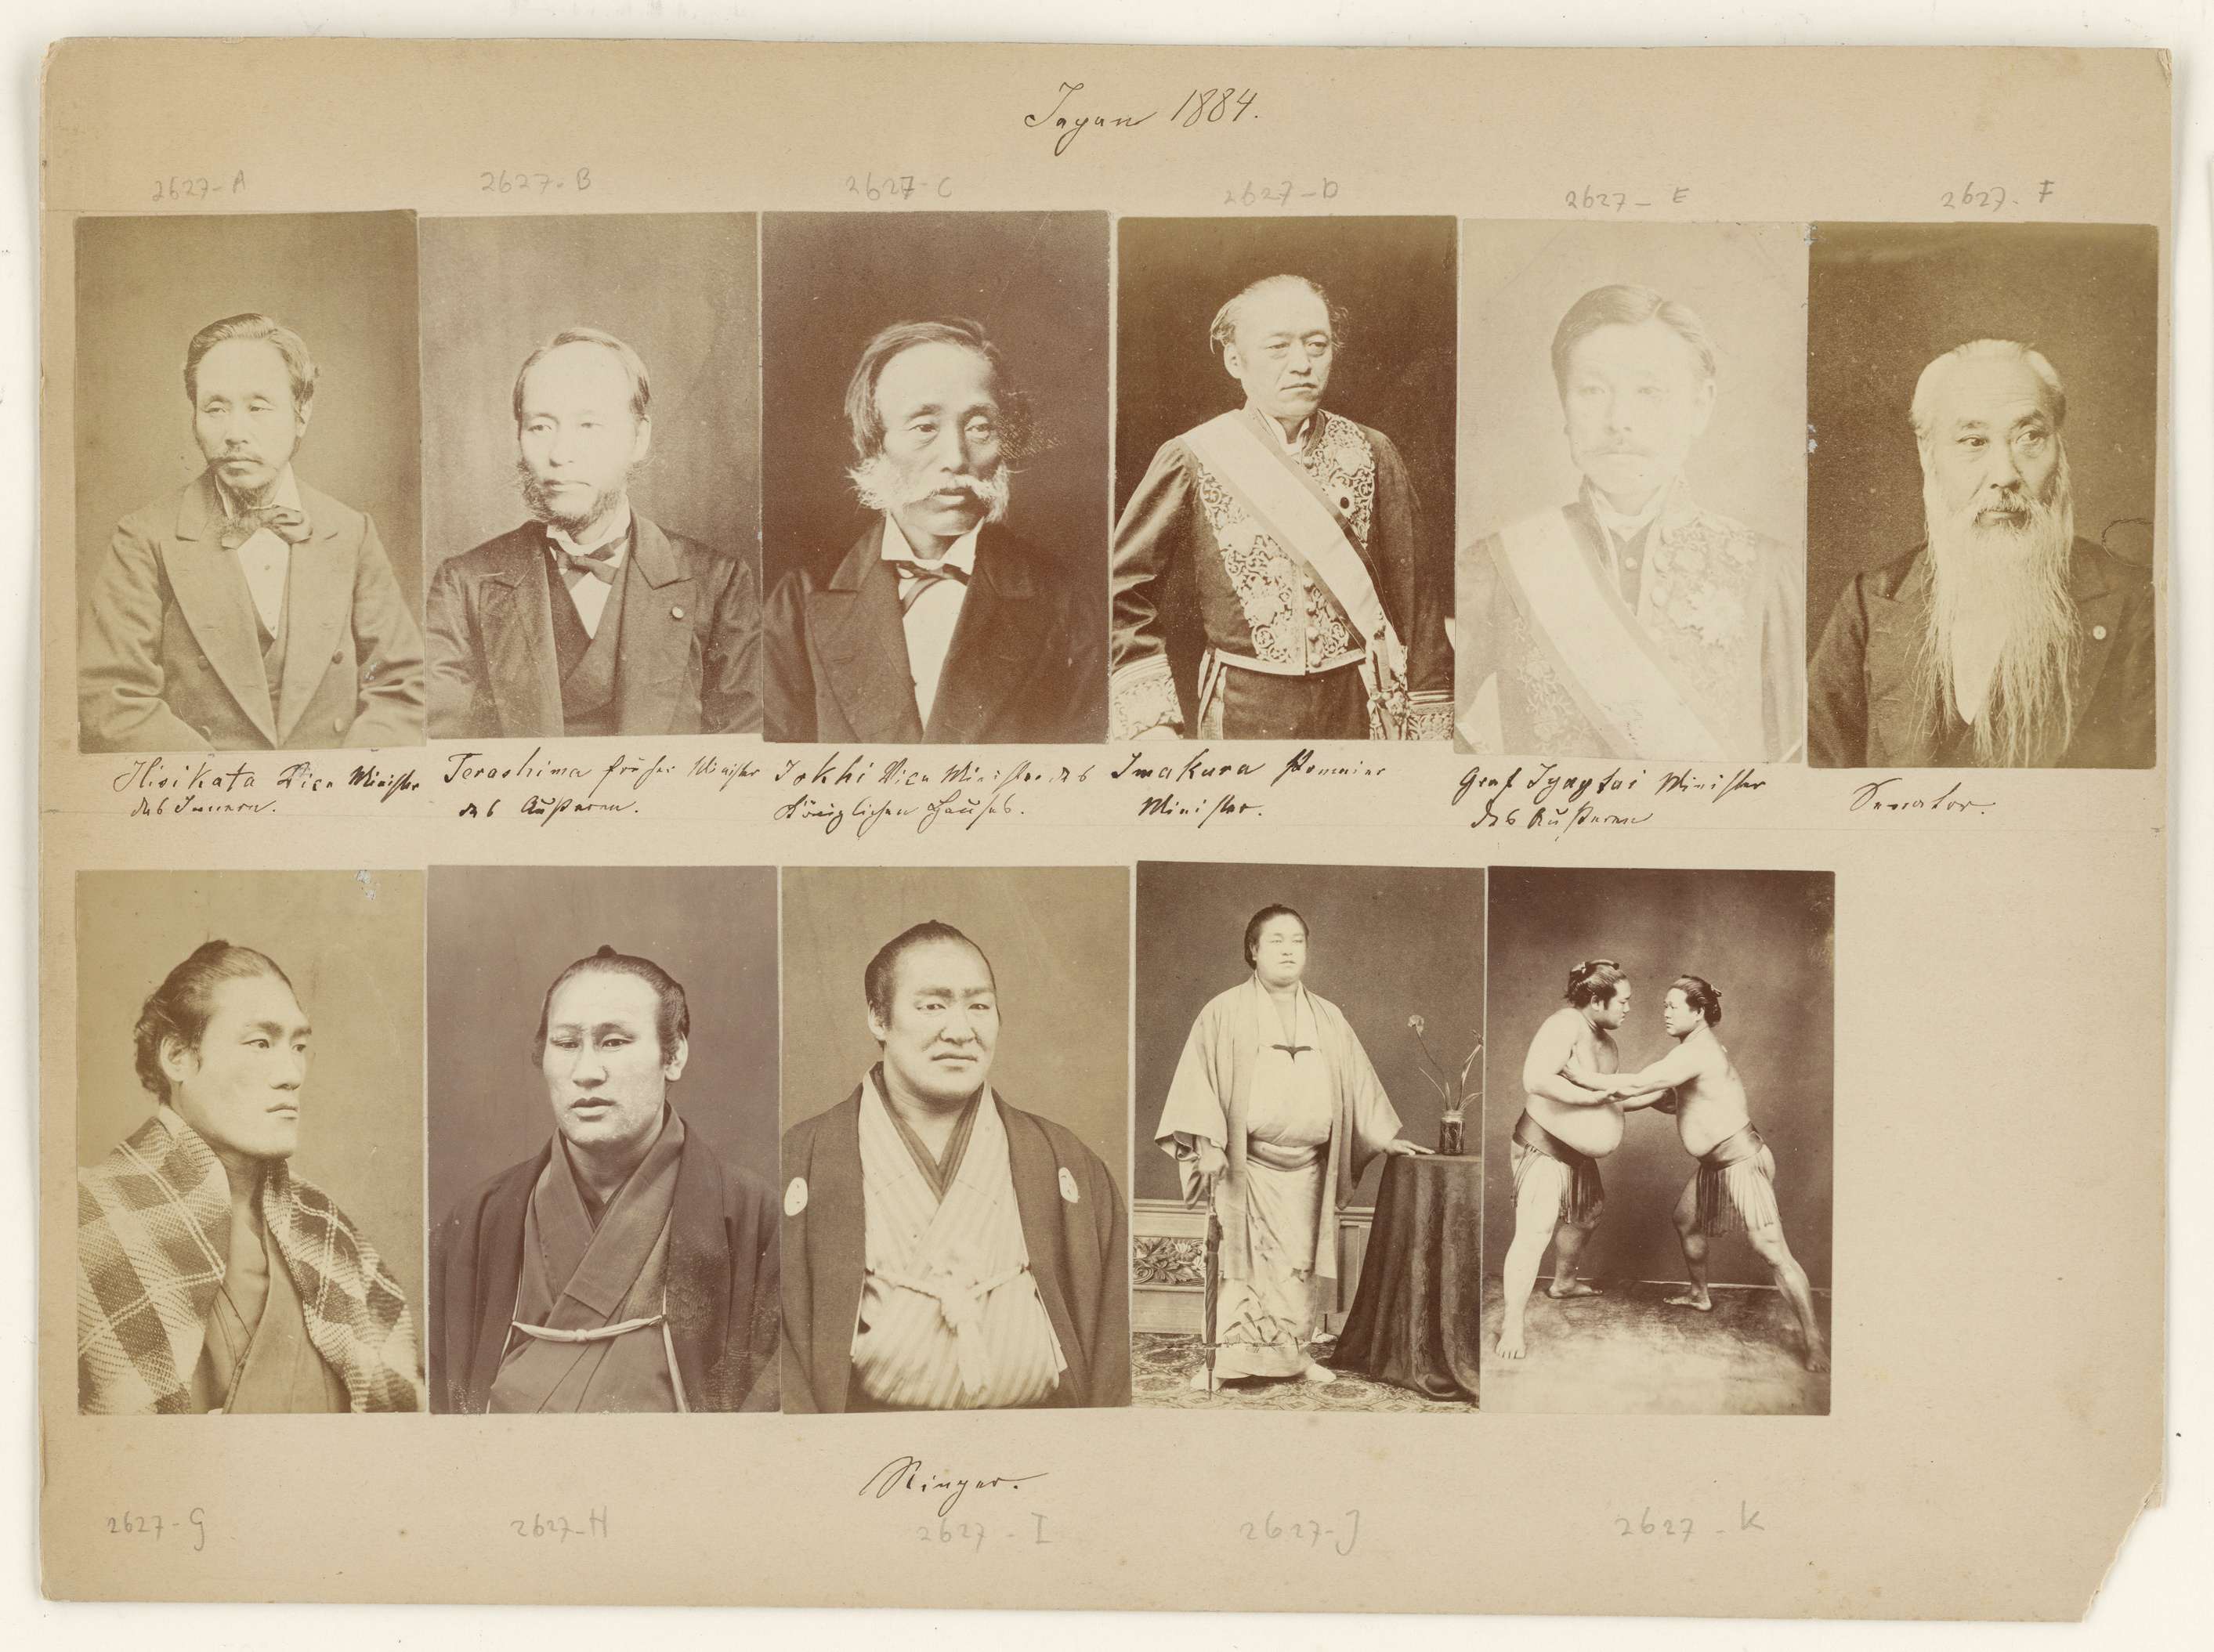 Japan 1884.
2627-A 2627-B 2627-C 2627-D 2627-E 2627-F
Hisikata Vice Minister
des Innern.
Terashima früher Minister
des Äußeren.
Tokhi Vice Minister des
Königlichen Hauses.
Iwakura Premier
Minister.
Graf Minister
des Äußeren
Senator.
Ringer.
2627-G 2627-H 2627-I 2627-J 2627-K